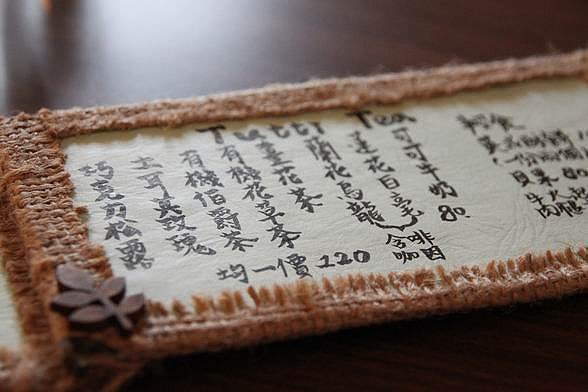 Tutti Tea
巧克力松露
土耳其玫瑰
有機伯爵茶
有機花草茶
薑花茶
蘭花烏龍
蓮花白毫
含咖啡因
可可牛奶 80.
均一價 120
輕食
貝果 80